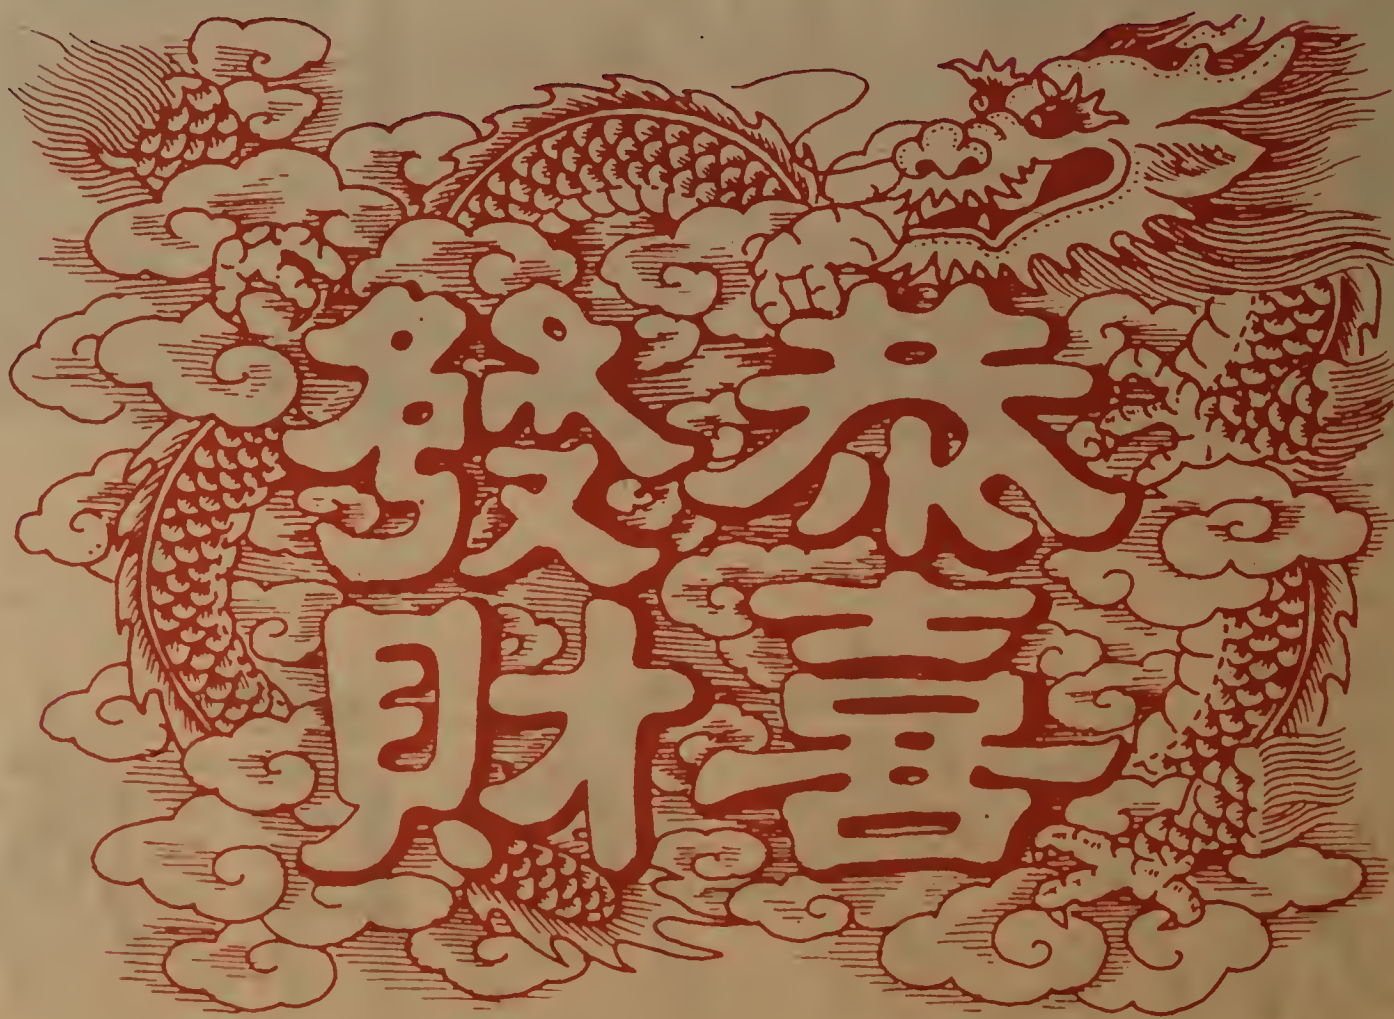 恭喜
發財